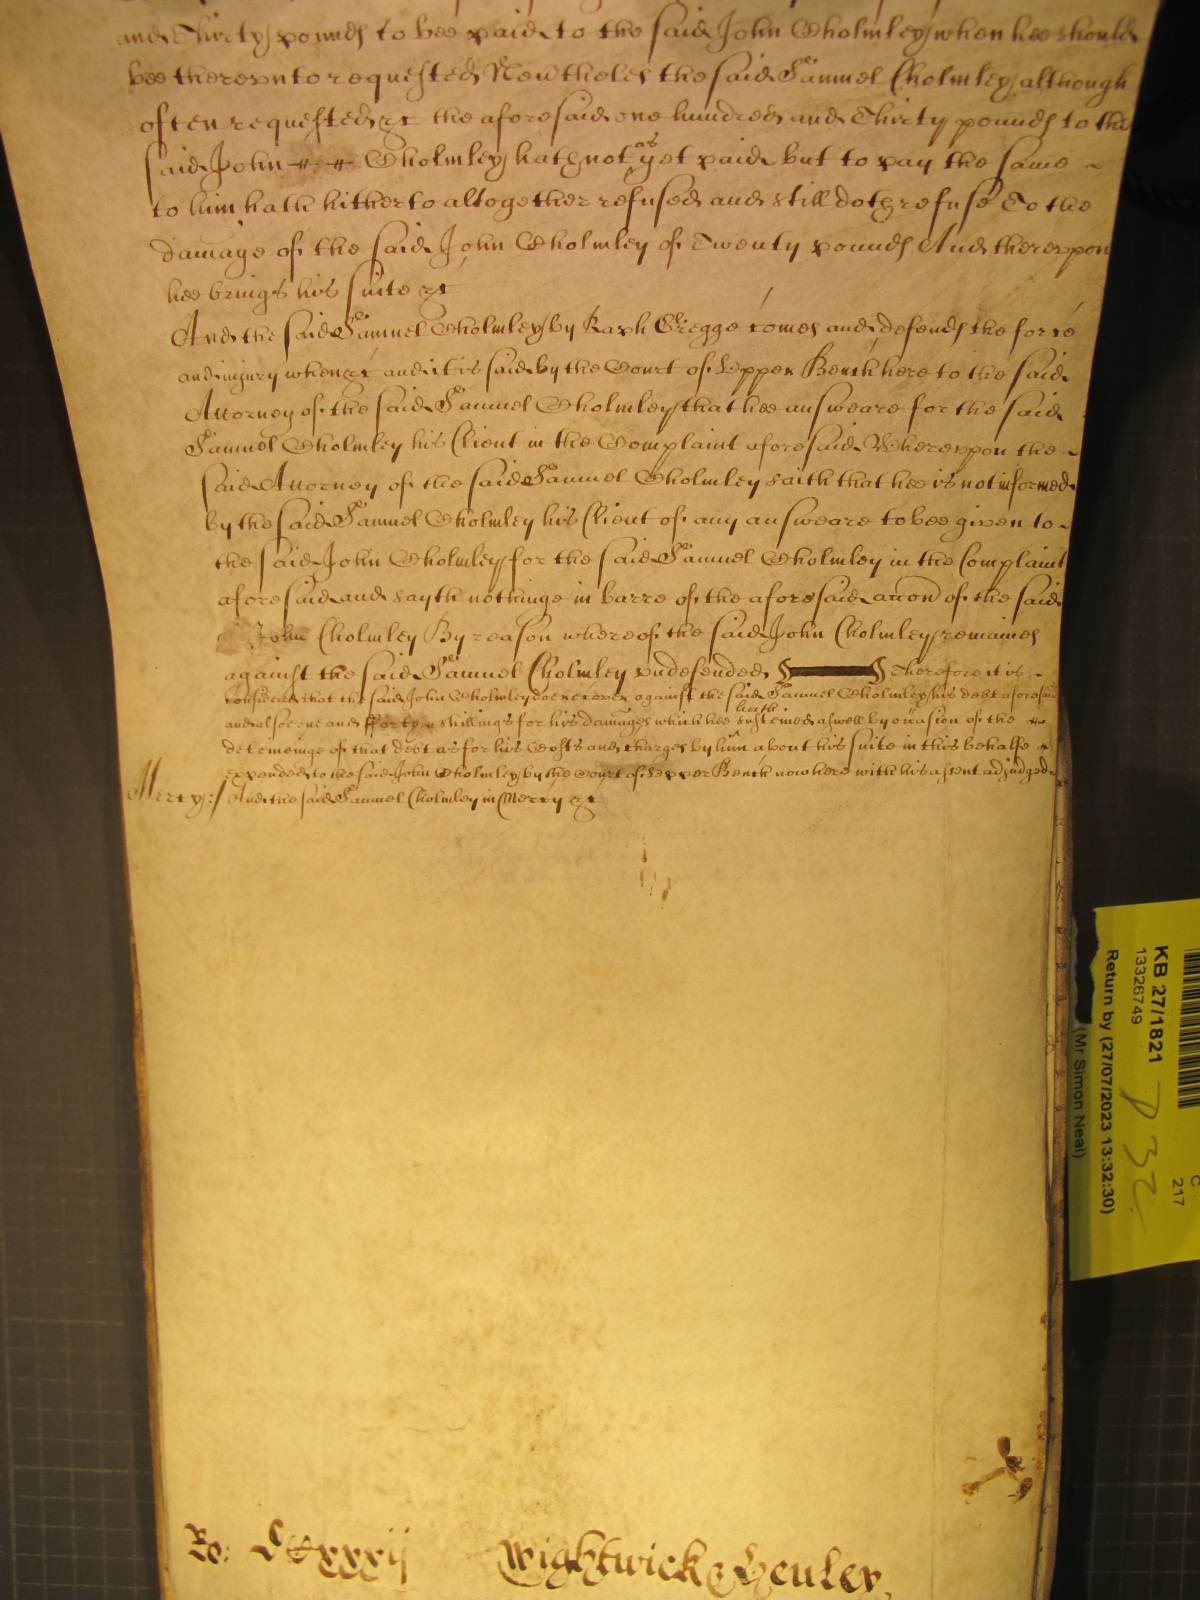 and Thirty pounds to bee paid to the said John Cholmley when hee should
bee therevnto requested Neu'theles the said Samuel Cholmley although
often requested &c the aforesaid one hundred and Thirty pounds to the
said John Cholmley hath not as yet paid but to pay the same
to him hath hitherto altogether refused and still doth refuse To the
damage of the said John Cholmley of Twenty pounds And therevpon
hee brings his suite &c
And the said Samuel Cholmley by Raph Gregge comes and defends the force
and injury when &c and it is said by the Court of Vpper Bench here to the said
Attorney of the said Samuel Cholmley that hee answeare for the said
Samuel Cholmley his Client in the Complaint aforesaid Wherevpon the
said Attorney of the said Samuel Cholmley saith that hee is not informed
by the said Samuel Cholmley his Client of any answeare to bee given to
the said John Cholmley for the said Samuel Cholmley in the Complaint
aforesaid and sayth nothinge in barre of the aforesaid accon of the said
John Cholmley By reason whereof the said John Cholmley remaines
against the said Samuel Cholmley vndefended Therefore it is
considered that the said John Cholmley doe recover against the said Samuel Cholmley his debt aforesaid
and alsoe one and fforty shillings for his damages which hee hath susteined aswell by occasion of the
deteineinge of that debt as for his Costs and charges by him about his suite in this behalfe
expended to the said John Cholmley by the Court of Vpper Bench now here with his assent adjudged
Mercy:/ And the said Samuel Cholmley in Mercy &c
Ro: CCxxxij Wightwick & Henley
KB 27/1821
13326749
Return by (27/07/2023 13:32:30)
(Mr Simon Neal)
C
217